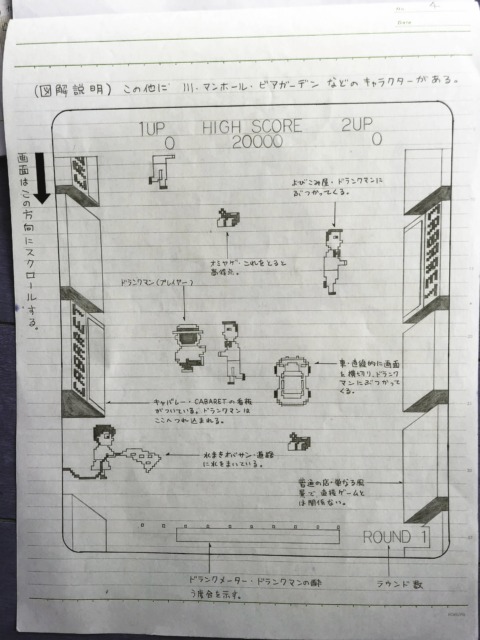 No.
Date
(図解説明) この他に 川・マンホール・ビアガーデン などの キャラクターがある。
1UP HIGH SCORE 2UP
0 20000 0
画面はこの方向にスクロールする。
よびこみ屋・ドランクマンに
ぶつかってくる。
CABARET
これをとると
高得点。
ドランクマン(プレイヤー)
車・直線的に画面
を横切り、ドランク
マンにぶつかって
くる。
CABARET
キャバレー・CABARETの看板
がついている。ドランクマンは
ここへつれ込まれる。
水まきオバサン・道路
に水をまいている。
普通の店・単なる風
景で直接ゲームと
は関係ない。
ROUND 1
ドランクメーター・ドランクマンの酔
う度合を示す。
ラウンド数